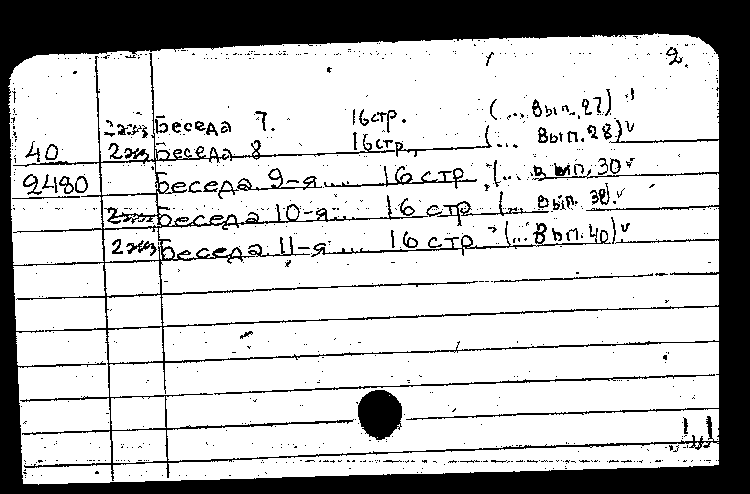 2.
2экз Беседа 7. 16стр. (... Вып. 27)
40 2экз Беседа 8 16стр., (... Вып. 28) v
2480 Беседа 9-я.... 16 стр (... вып. 30 v
2экз Беседа 10-я... 16 стр (... вып. 38). v
2экз Беседа 11-я.... 16 стр (... Вып. 40). v